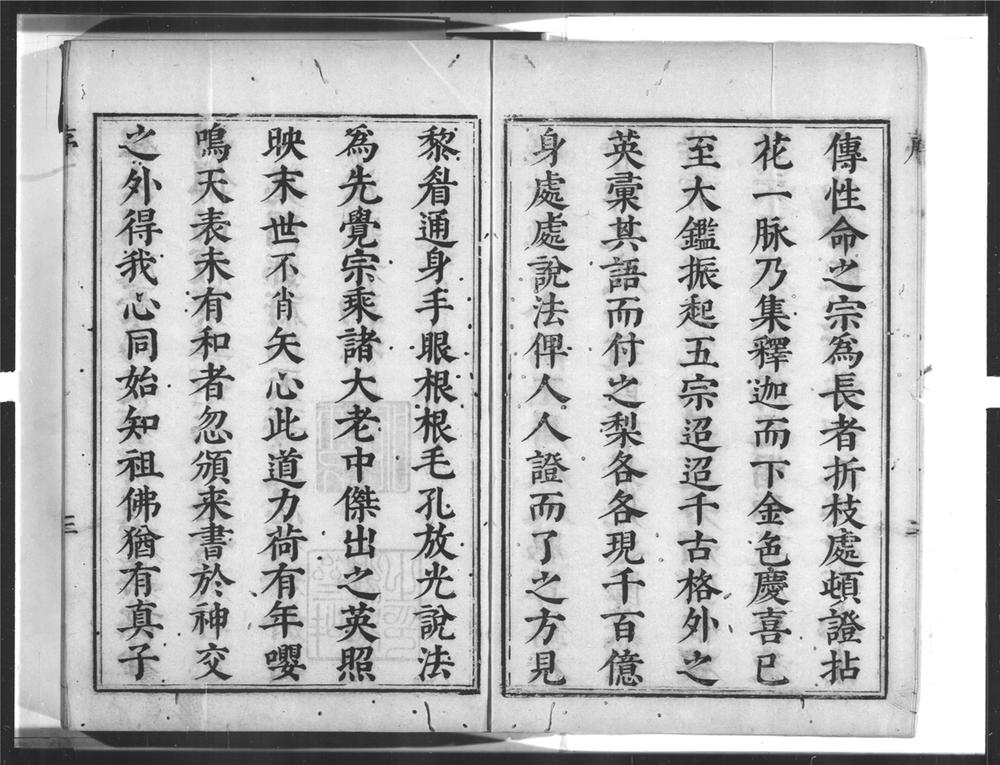 傳性命之宗為長者折枝處頓證拈
花一脉乃集釋迦而下金色慶喜已
至大鑑振起五宗迢迢千古格外之
英彙其語而付之梨各各現千百億
身處處說法俾人人證而了之方見
二
黎眉通身手眼根根毛孔放光說法
為先覺宗乘諸大老中傑出之英照
映末世不肖矢心此道力荷有年嚶
鳴天表未有和者忽頒来書於神交
之外得我心同始知祖佛猶有真子
三